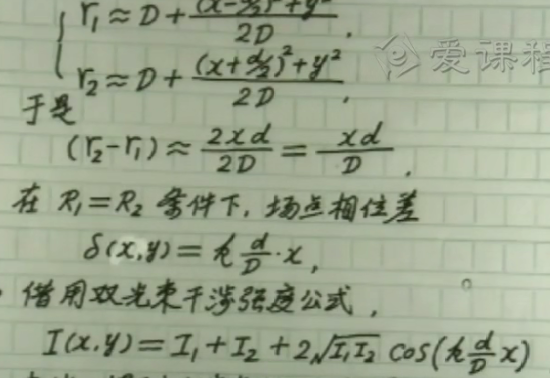 r₁ ≈ D + (x-d/2)²+y² / 2D .
r₂ ≈ D + (x+d/2)²+y² / 2D .
爱课程
于是
(r₂-r₁) ≈ 2xd/2D = xd/D .
在 R₁=R₂ 条件下, 场点相位差
δ(x,y) = k d/D · x ,
借用双光束干涉强度公式 ,
I(x,y) = I₁ + I₂ + 2√I₁I₂ cos(k d/D x)